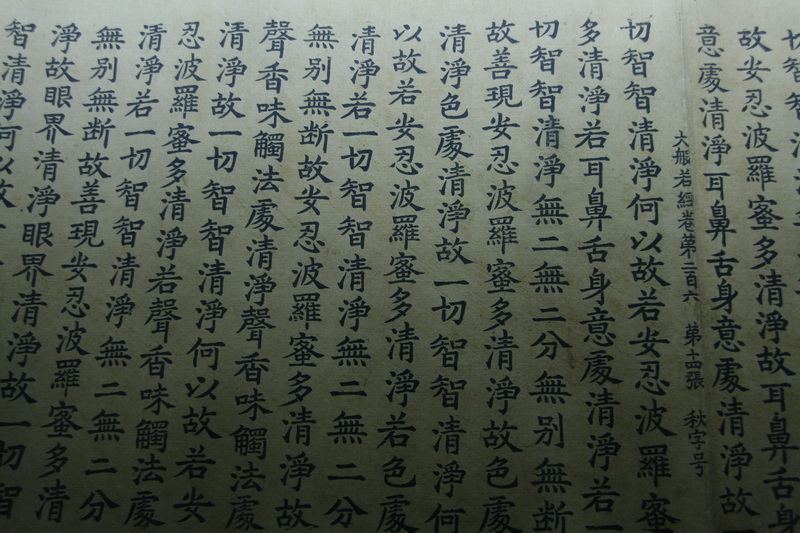 切智智清
故安忍波羅蜜多清淨故耳鼻舌身
意處清淨耳鼻舌身意處清淨故
大般若經卷第二百六 第十四張 秋字号
切智智清淨何以故若安忍波羅蜜
多清淨若耳鼻舌身意處清淨若一
切智智清淨無二無二分無別無斷
故善現安忍波羅蜜多清淨故色處
清淨色處清淨故一切智智清淨何
以故若安忍波羅蜜多清淨若色處
清淨若一切智智清淨無二無二分
無別無斷故安忍波羅蜜多清淨故
聲香味觸法處清淨聲香味觸法處
清淨故一切智智清淨何以故若安
忍波羅蜜多清淨若聲香味觸法處
清淨若一切智智清淨無二無二分
無別無斷故善現安忍波羅蜜多清
淨故眼界清淨眼界清淨故一切智
智清淨何以故